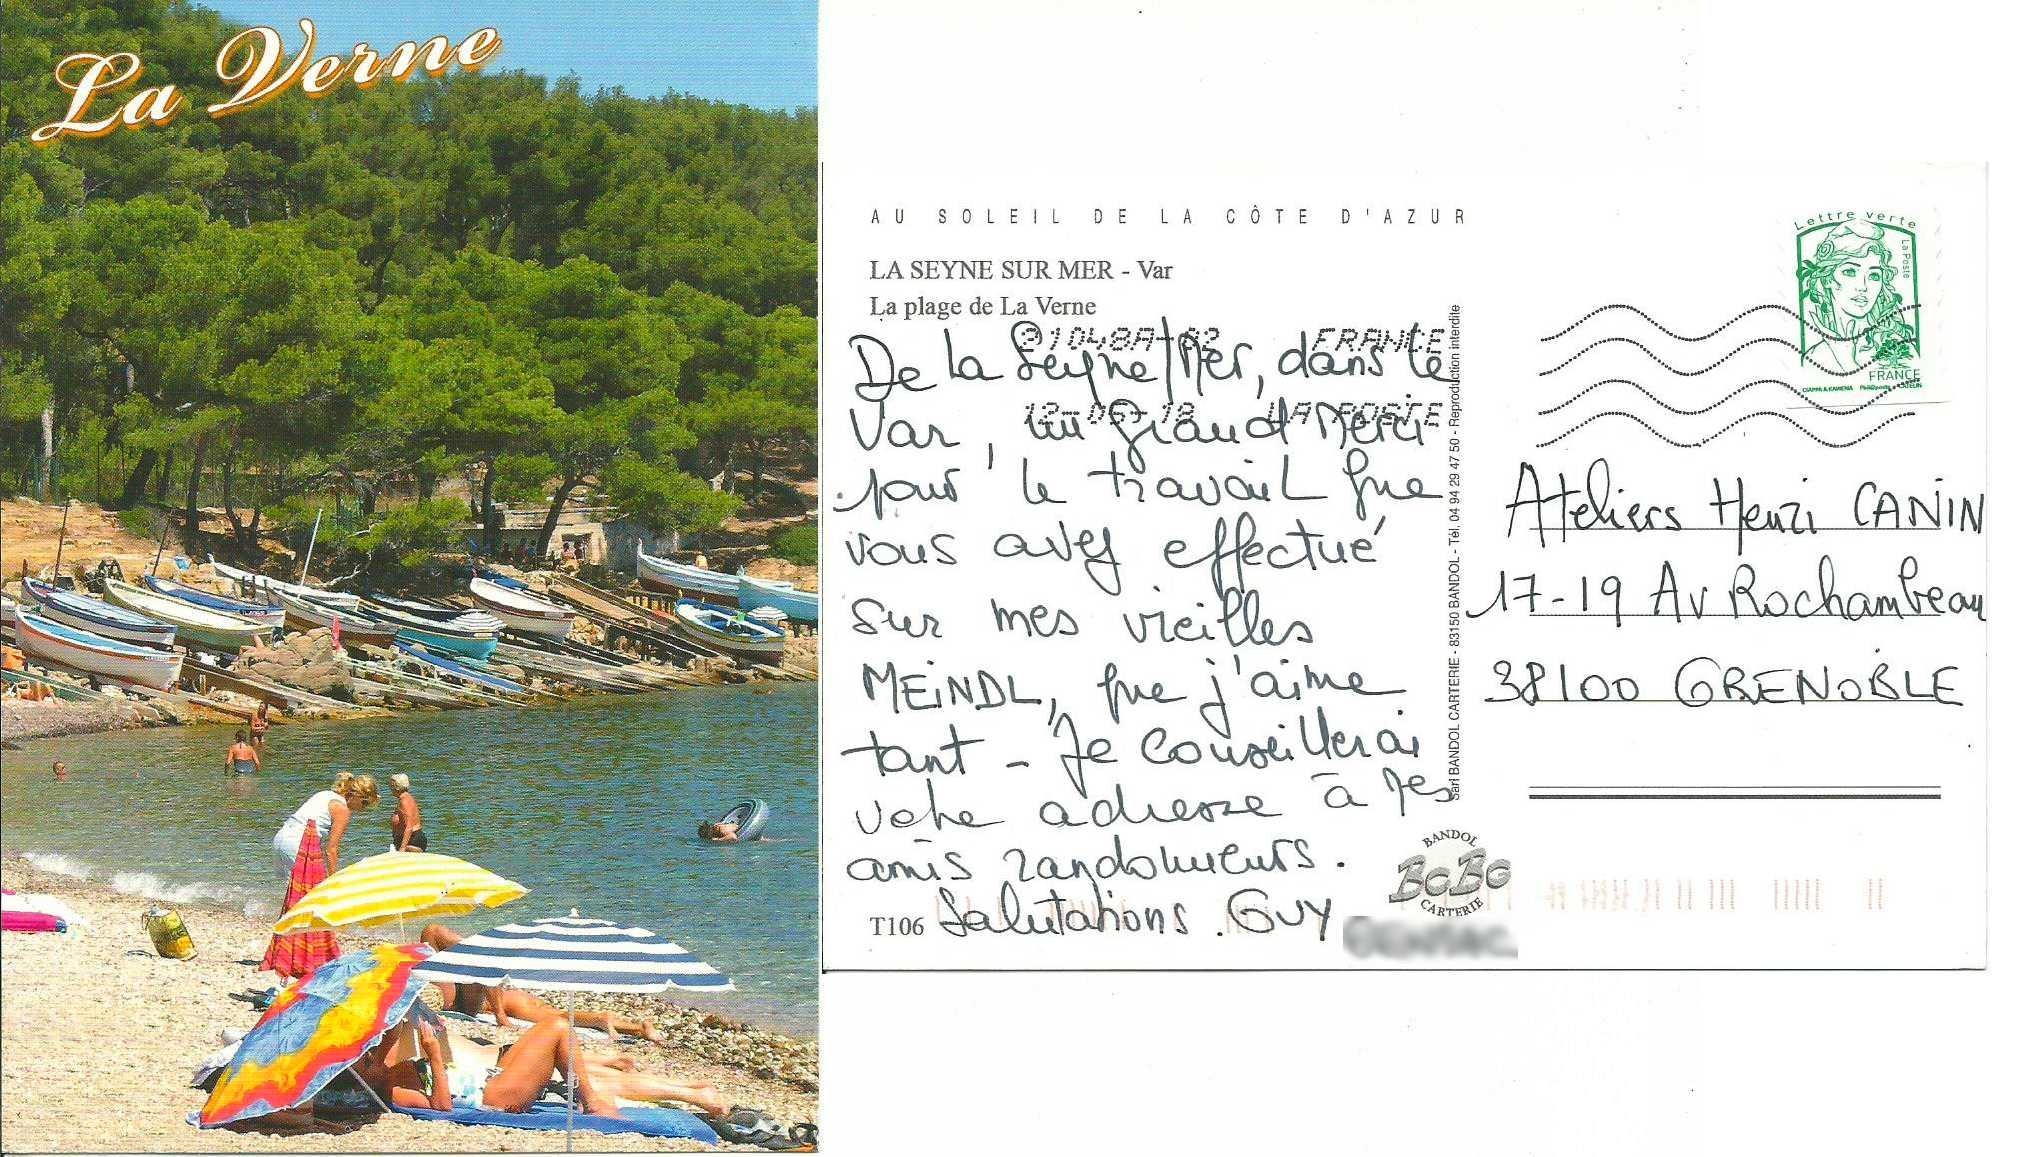 La Verne
AU SOLEIL DE LA CÔTE D'AZUR
LA SEYNE SUR MER - Var
La plage de La Verne
31048A-02 FRANCE
12-06-18 LA POSTE
De la Seyne/Mer, dans le
Var, un grand Merci
pour le travail que
vous avez effectué
sur mes vieilles
MEiNDL, que j'aime
tant - Je conseillerai
votre adresse à mes
amis randonneurs.
T106 Salutations. GUY
Sarl BANDOL CARTERIE - 83150 BANDOL - Tél. 04 94 29 47 50 - Reproduction interdite
BANDOL
BCBG
CARTERIE
Lettre verte
La Poste
FRANCE
CIAPPA & KAWENA Phil@poste
Ateliers Henri CANiN
17-19 Av Rochambeau
38100 GRENOBLE